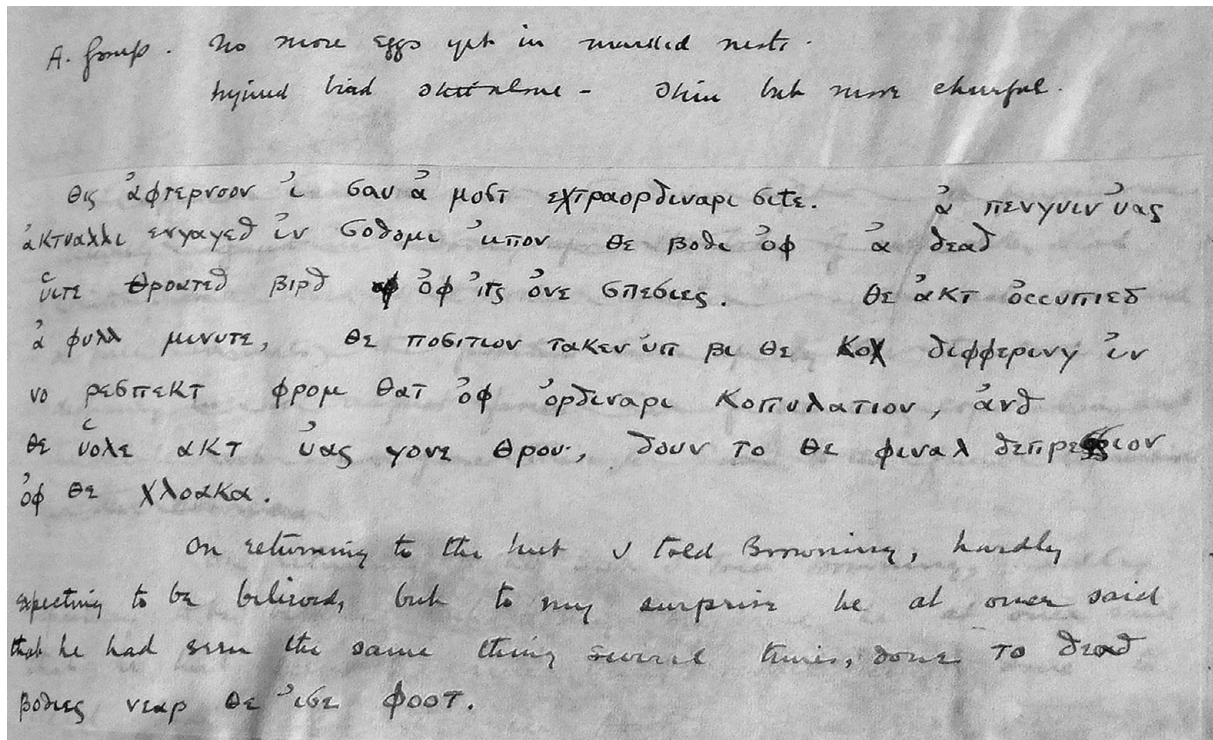 A. Group. No more eggs yet in marked nests.
Injured bird still alone - Thin but more cheerful.
θις ἀφτερνοον ἰ σαυ ἀ μοστ εχτραορδιναρι σιτε. ἀ πενγυιν ὐας
ἀκτυαλλι ενγαγεδ ἰν σοδομι ἰυπον θε βοδι ὀφ ἀ δεαδ
ὑιτε θροατεδ βιρδ ὀφ ἰτς ὀνε σπεσιες. θε ἀκτ ὀccυπιεδ
ἀ φυλλ μινυτε, θε ποσιτιον τακεν ὐπ βι θε κοχ διφφερινγ ἰν
νο ρεσπεκτ φρομ θατ ὀφ ὀρδιναρι κοπυλατιον, ἀνδ
θε ὑολε ακτ ὐας γονε θρου, δουν το θε φιναλ δεπρεσσιον
ὀφ θε χλοακα.
On returning to the hut I told Browning, hardly
expecting to be believed, but to my surprise he at once said
that he had seen the same thing several times, done το δεαδ
βοδιες νεαρ θε ἰσε φοοτ.